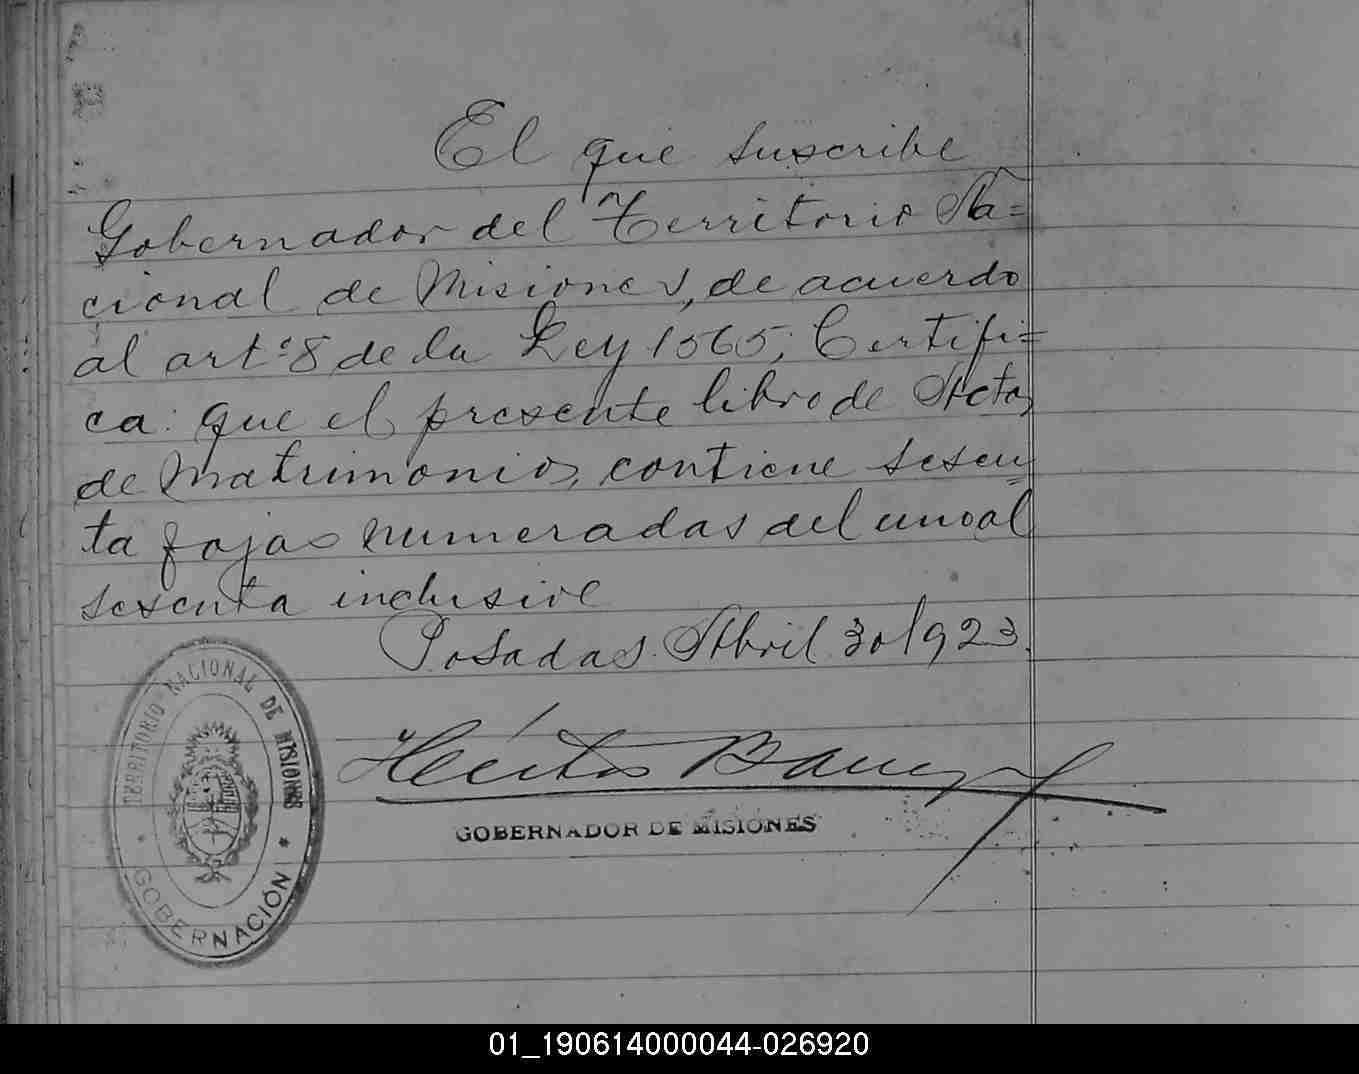 El que suscribe
Gobernador del Territorio Na=
cional de Misiones, de acuerdo
al art.º 8 de la Ley 1565; Certifi=
ca: que el presente libro de Actas
de Matrimonios, contiene sesen
ta fojas numeradas del uno al
sesenta inclusive
Posadas. Abril 30/923.
Héctor
GOBERNADOR DE MISIONES
TERRITORIO NACIONAL DE MISIONES
* GOBERNACIÓN *
01_190614000044-026920